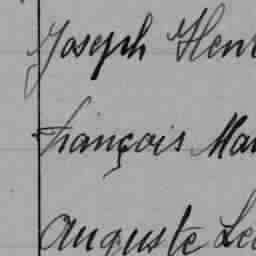 Joseph Hen
François Ma
Auguste Le